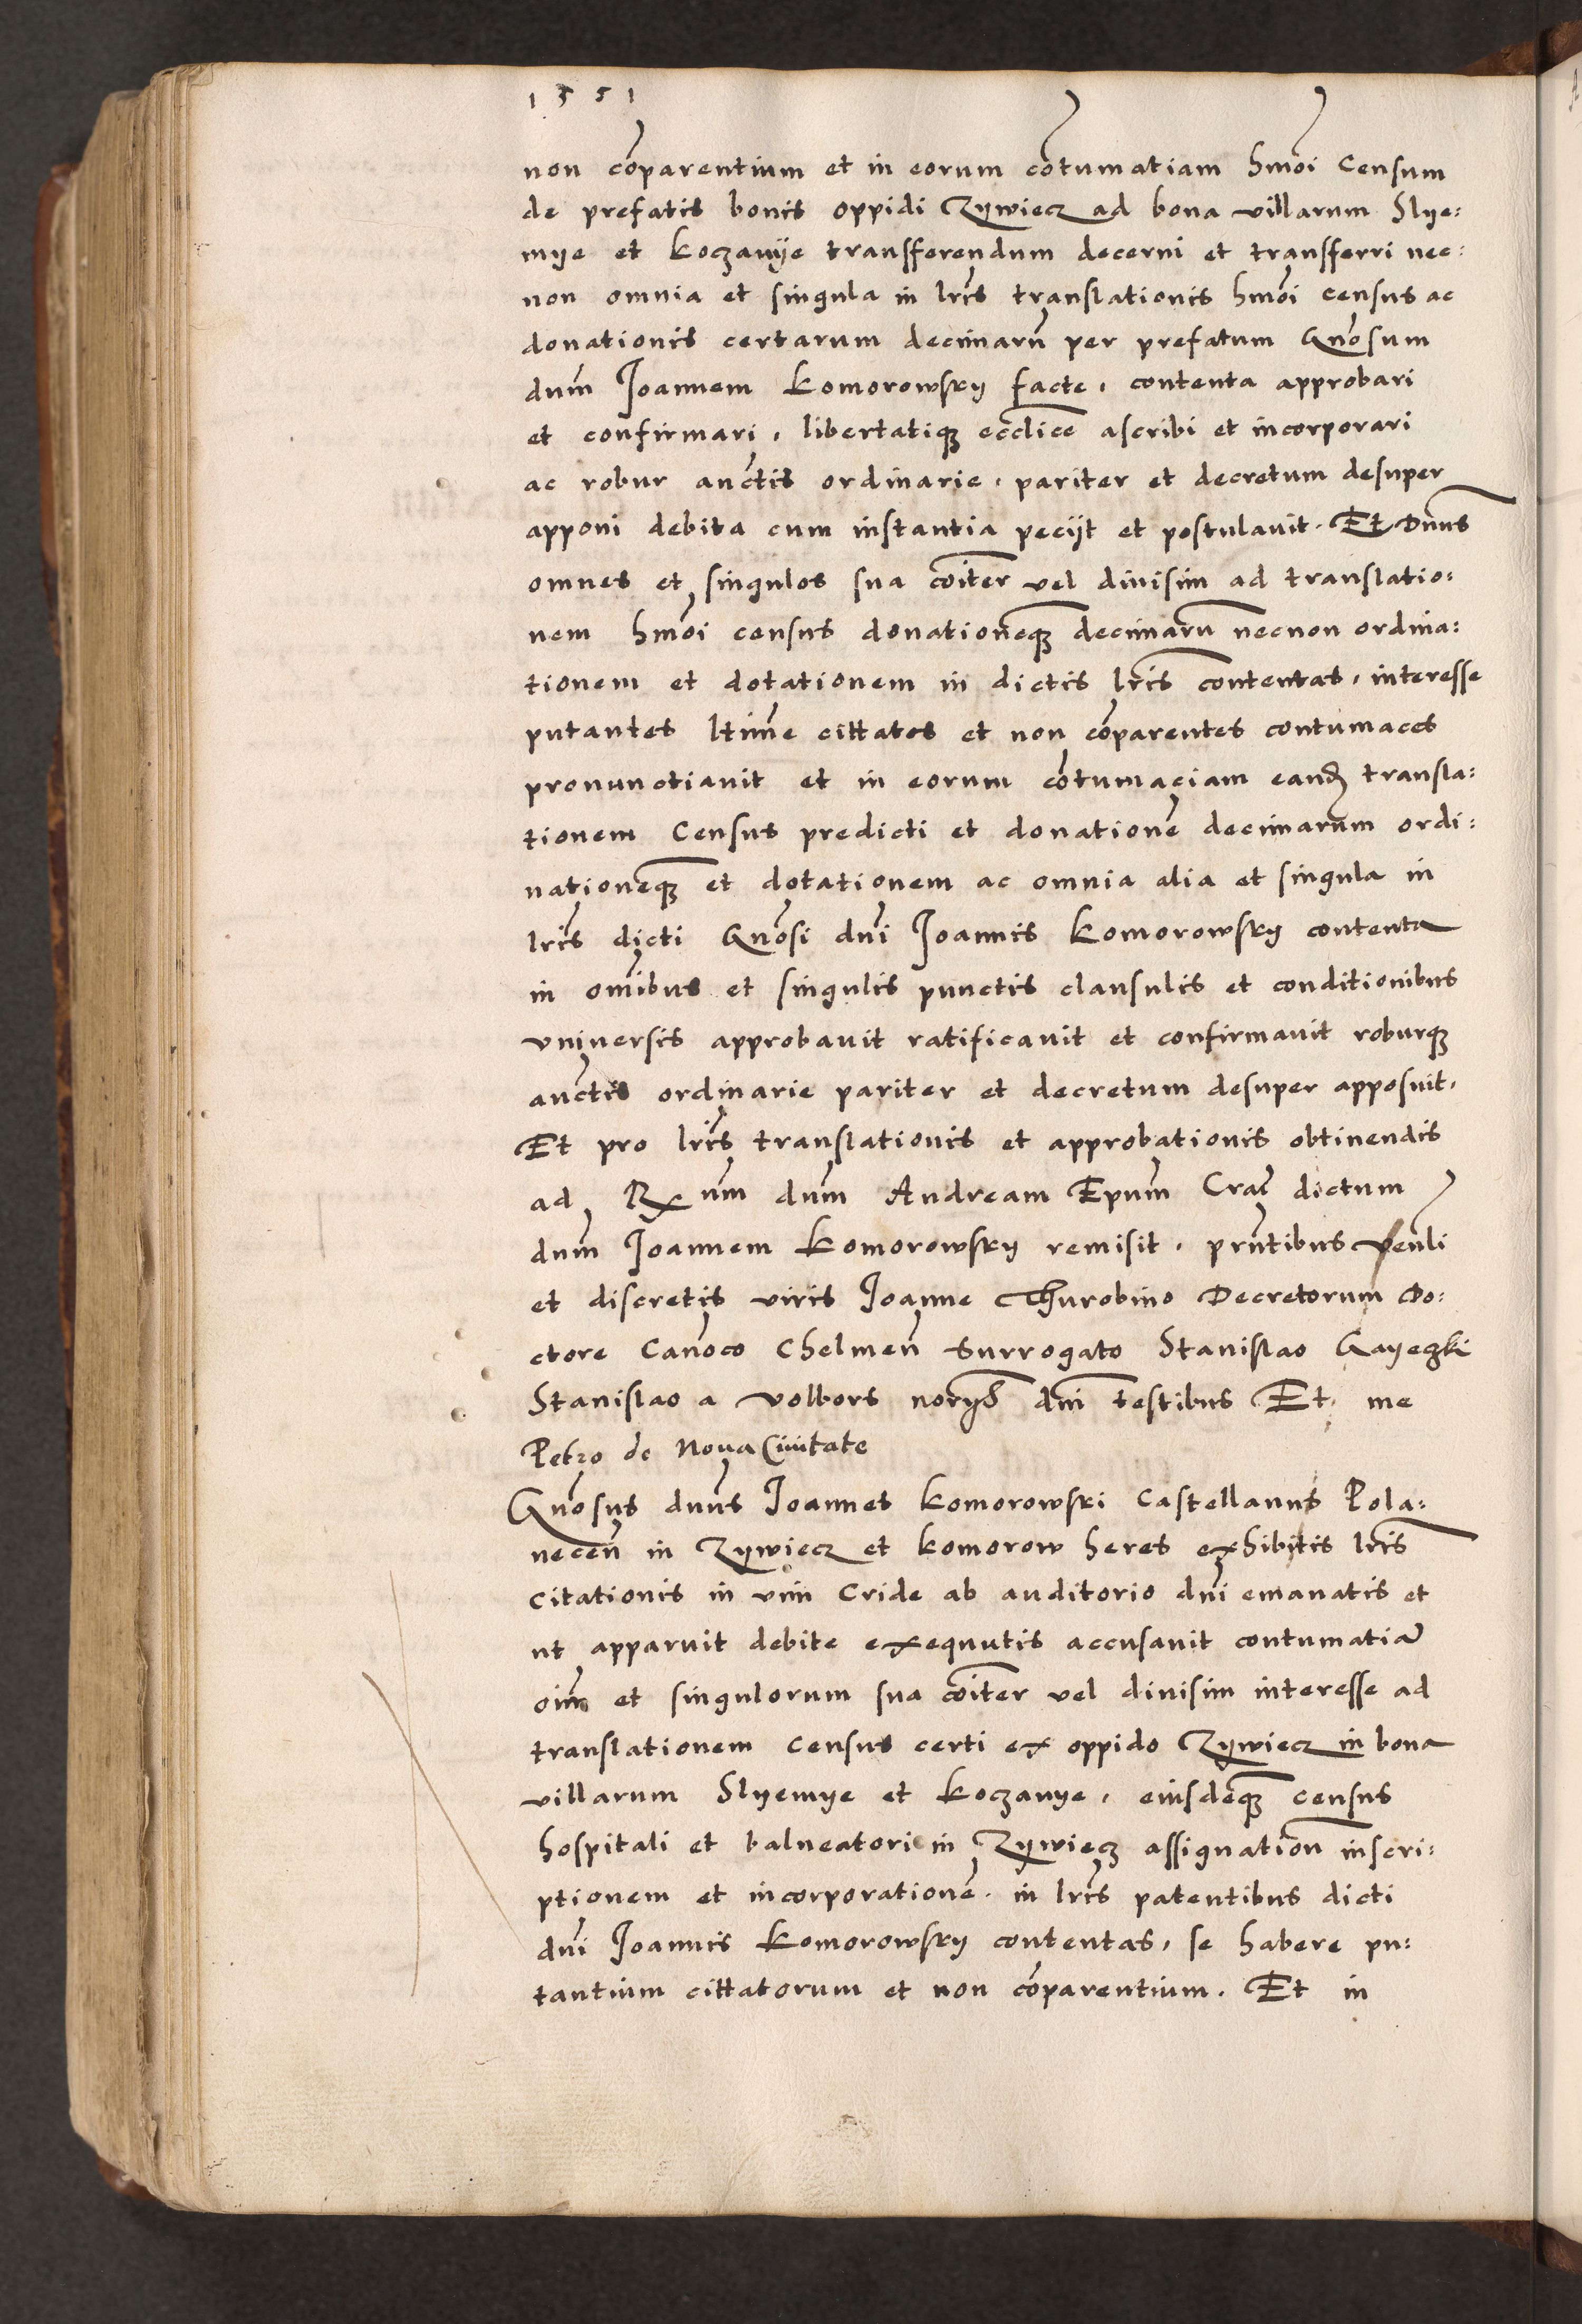 1551
non cõparentium et in eorum cõtumatiam hmõi Censum
de prefatis bonis oppidi Zywiecz ad bona villarum Slye:
mye et Koczanye transferendum decerni et transferri nec:
non omnia et singula in lris translationis hmõi census ac
donationis certarum decimarũ per prefatum Gnosum
dum Joannem Komorowsky facte, contenta approbari
et confirmari, libertatique ecclice ascribi et incorporari
ac robur auctis ordinarie, pariter et decretum desuper
apponi debita cum instantia peciit et postulavit. Et Dnus
omnes et singulos sua coiter vel divisim ad translatio:
nem hmõi census donationemque decimarũ necnon ordina:
tionem et dotationem in dictis lris contentas, interesse
putantes ltime cittatos et non cõparentes contumaces
pronunctiavit et in eorum cõtumaciam eand transla:
tionem Census predicti et donationẽ decimarum ordi:
nationemque et dotationem ac omnia alia et singula in
lris dicti Gnosi dni Joannis Komorowsky contenta
in omibus et singulis punctis clausulis et conditionibus
universis approbavit ratificavit et confirmavit roburque
auctis ordinarie pariter et decretum desuper apposuit.
Et pro lris translationis et approbationis obtinendis
ad Rx um dum Andream Epum Crac dictum
dum Joannem Komorowsky remisit. prntibus venli
et discretis viris Joanne Thurobino Decretorum Do:
ctore Canoco Chelmeñ Surrogato Stanislao Gayeczki
Stanislao a Volbors norys dni testibus Et me
Petro de Nova Civitate
Gnosus dnus Joannes Komorowski Castellanus Pola:
neceñ in Zywiecz et Komorow heres exhibitis lris
citationis in vim Cride ab auditorio dni emanatis et
ut apparuit debite exequutis accusavit contumatiã
oim et singulorum sua coiter vel divisim interesse ad
translationem Census certi ex oppido Zywiecz in bona
villarum Slyemye et Koczanye, eiusdemque census
hospitali et balneatori in Zywiecz assignation inscri:
ptionem et incorporationẽ. in lris patentibus dicti
dni Joannis Komorowsky contentas, se habere pu:
tantium cittatorum et non cõparentium. Et in